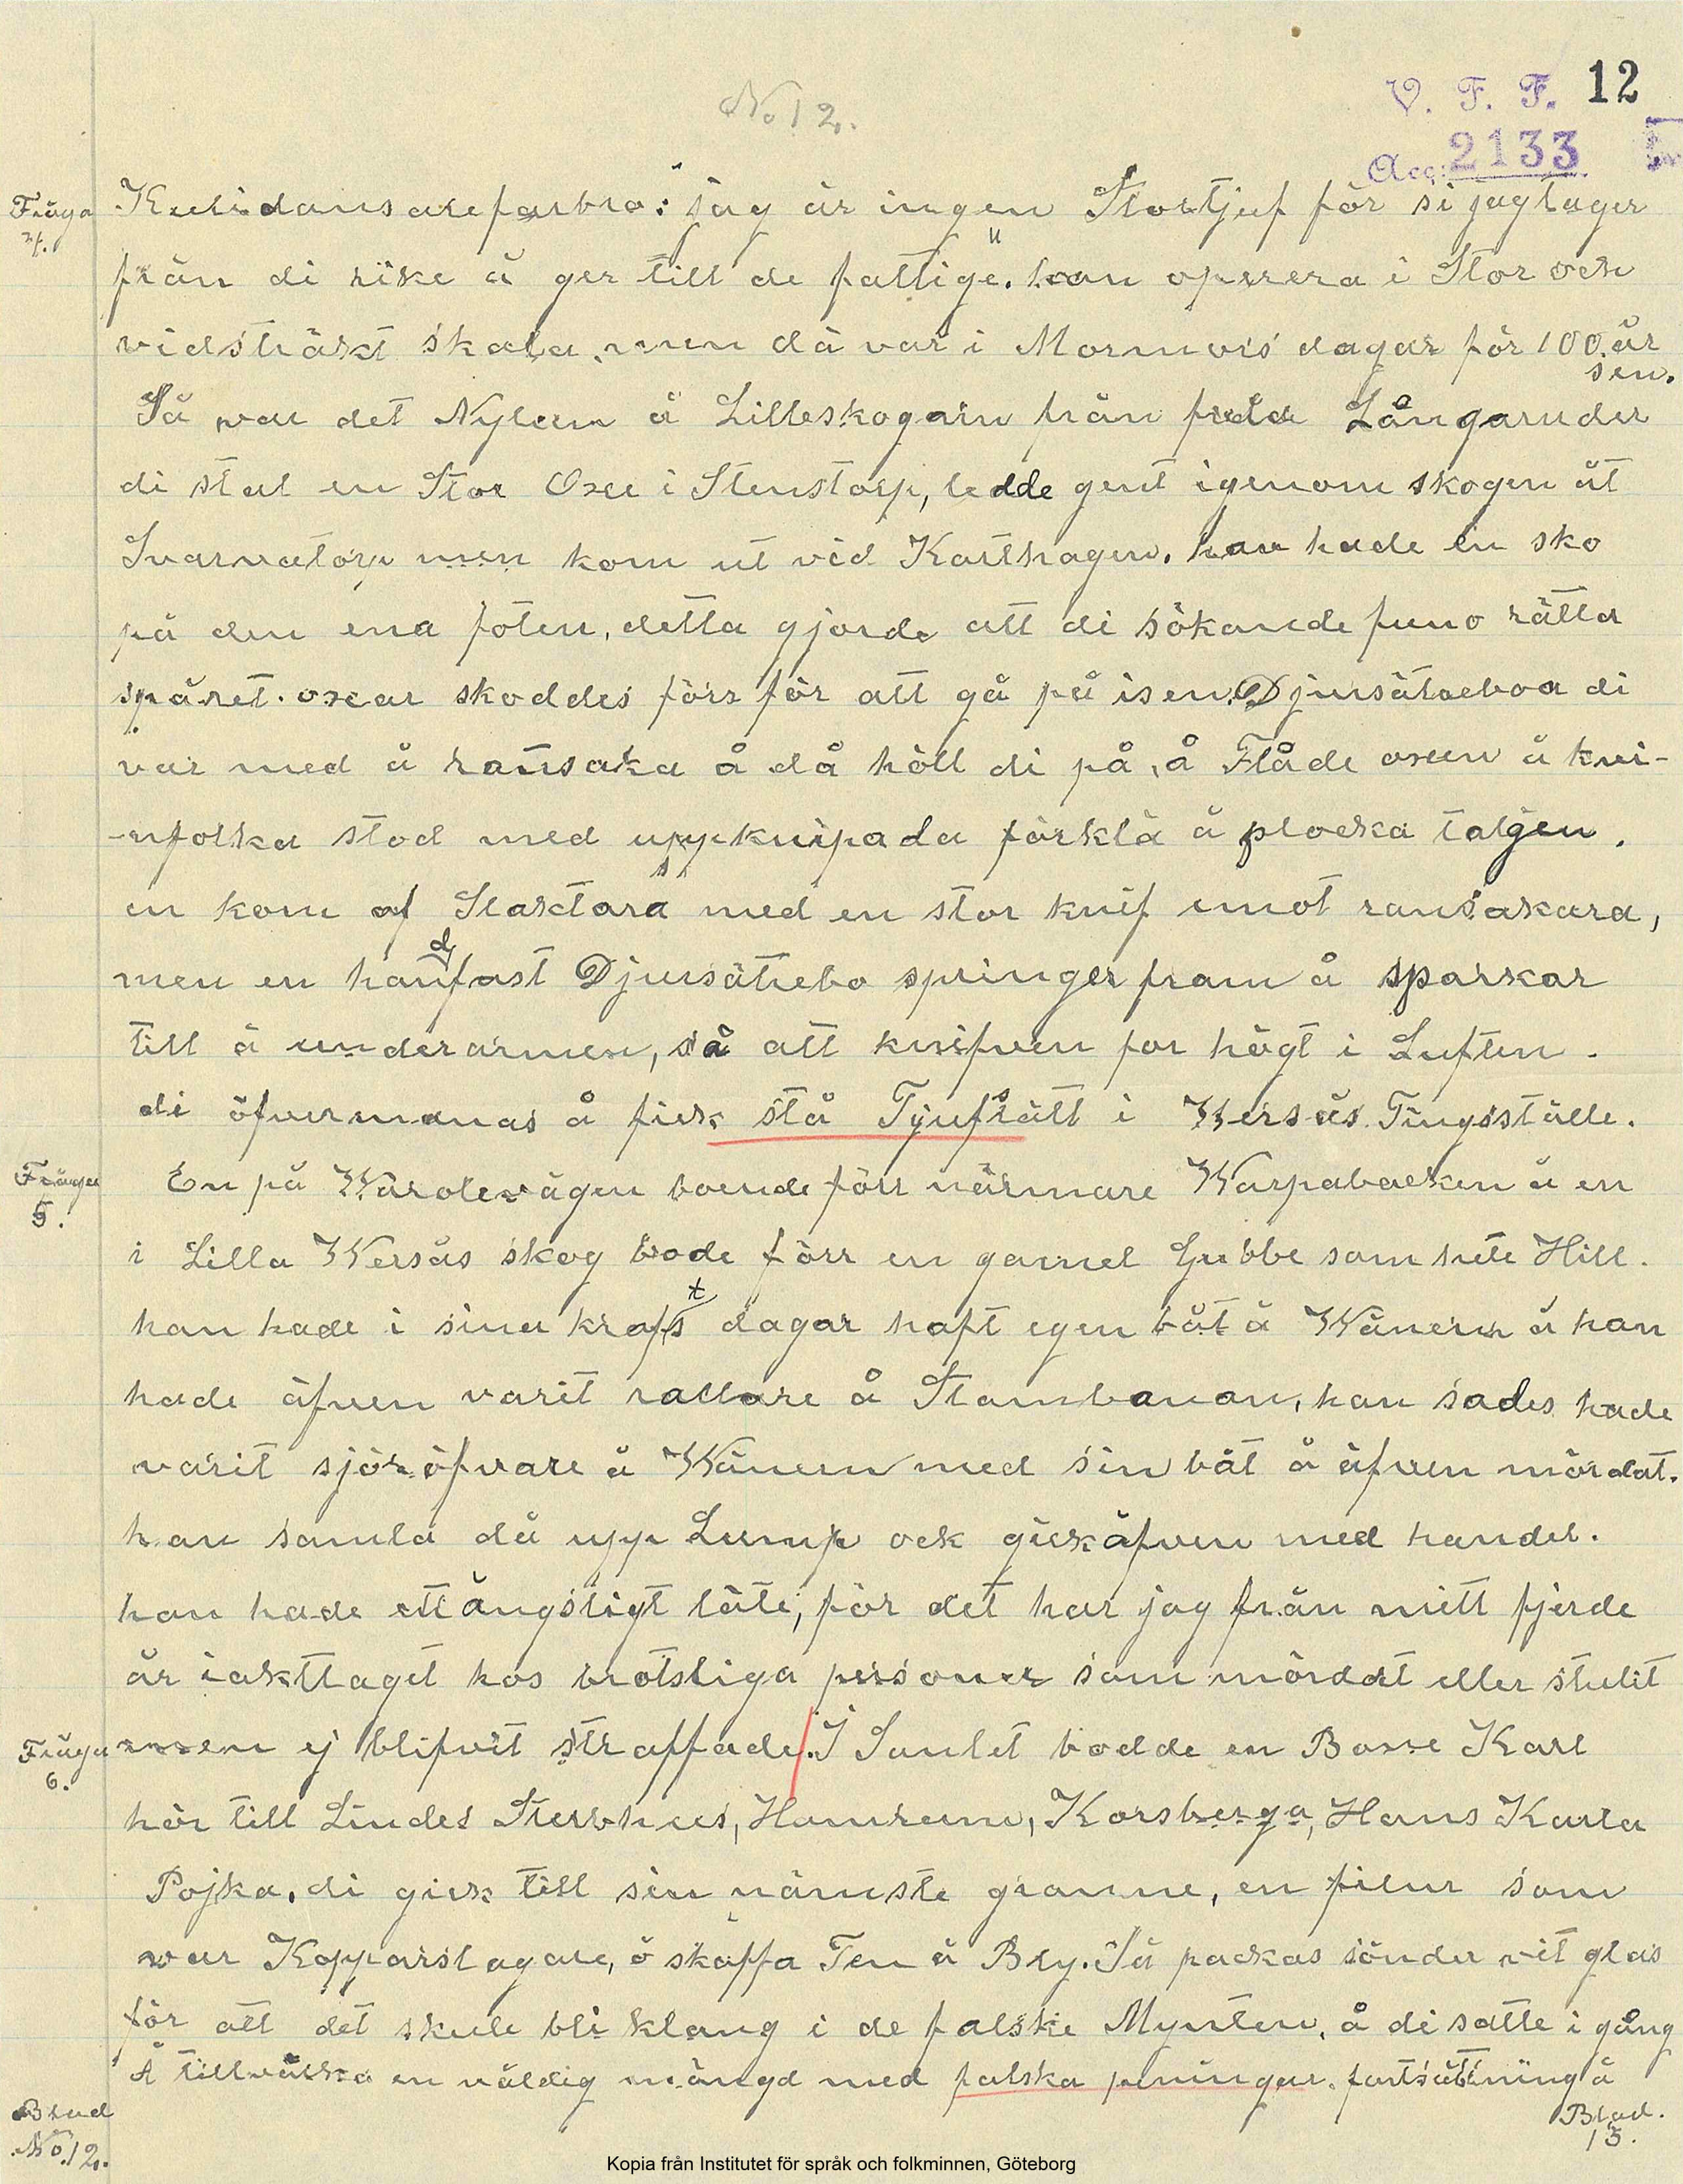 No 12.
V. F. F. 12
Acc: 2133
Fråga 4.
jag är ingen Stortjuf för si jag tager
från di rike å ger till de fattige". han operera i Stor ock
vidsträkt skala, men då var i Mormors dagar för 100. år
sen.
Så var det Nylern å Lilleskogarn från Långaruder
di stal en Stor Oxe i Stenstorp, ledde gent igenom skogen åt
men kom ut vid Karthagen. han hade en sko
på den ena foten, detta gjorde att di sökande funo rätta
spåret. oxar skoddes förr för att gå på isen. Djursätraboa di
var med å ransaka å då höll di på, å Flåde oxen å kvi-
-nfolka stod med uppknipada förklä å plocka talgen.
en kom af Slaktara med en stor knif emot ransakara,
men en handfast Djursätrebo springer fram å sparkar
till å underarmen, så att knifven for högt i Luften.
di öfvermanas å fick stå Tjufsrätt i Wersås Tingsställe.
Fråga 5.
En på Wårolevägen boende förr närmare Warpabacken å en
i Lilla Wersås skog bode förr en gamel Gubbe som hete Hill.
han hade i sina krafts dagar haft egen båt å Wänern å han
hade äfven varit rallare å Stambanan, han sades hade
varit sjöröfvare å Wänern med sin båt å äfven mördat.
han samla då upp Lump ock gick äfven med handel.
han hade ett ängsligt läte, för det har jag från mitt fjerde
år iakttaget hos brotsliga personer som mördat eller stulit
Fråga 6.
men ej blifvit straffade. I Santet bodde en Karl
hör till Lindes Sterbhus, Hamrum, Korsberga, Hans Karla
Pojka, di gick till sin närmste granne, en filur som
var Kopparslagare, å skaffa Ten å Bly. Så packas sönder vit glas
för att det skule bli klang i de falske Mynten, å di satte i gång
Å tillvärka en väldig mängd med falska peningar. fortsättning å
Blad. 13.
Blad No. 12.
Kopia från Institutet för språk och folkminnen, Göteborg